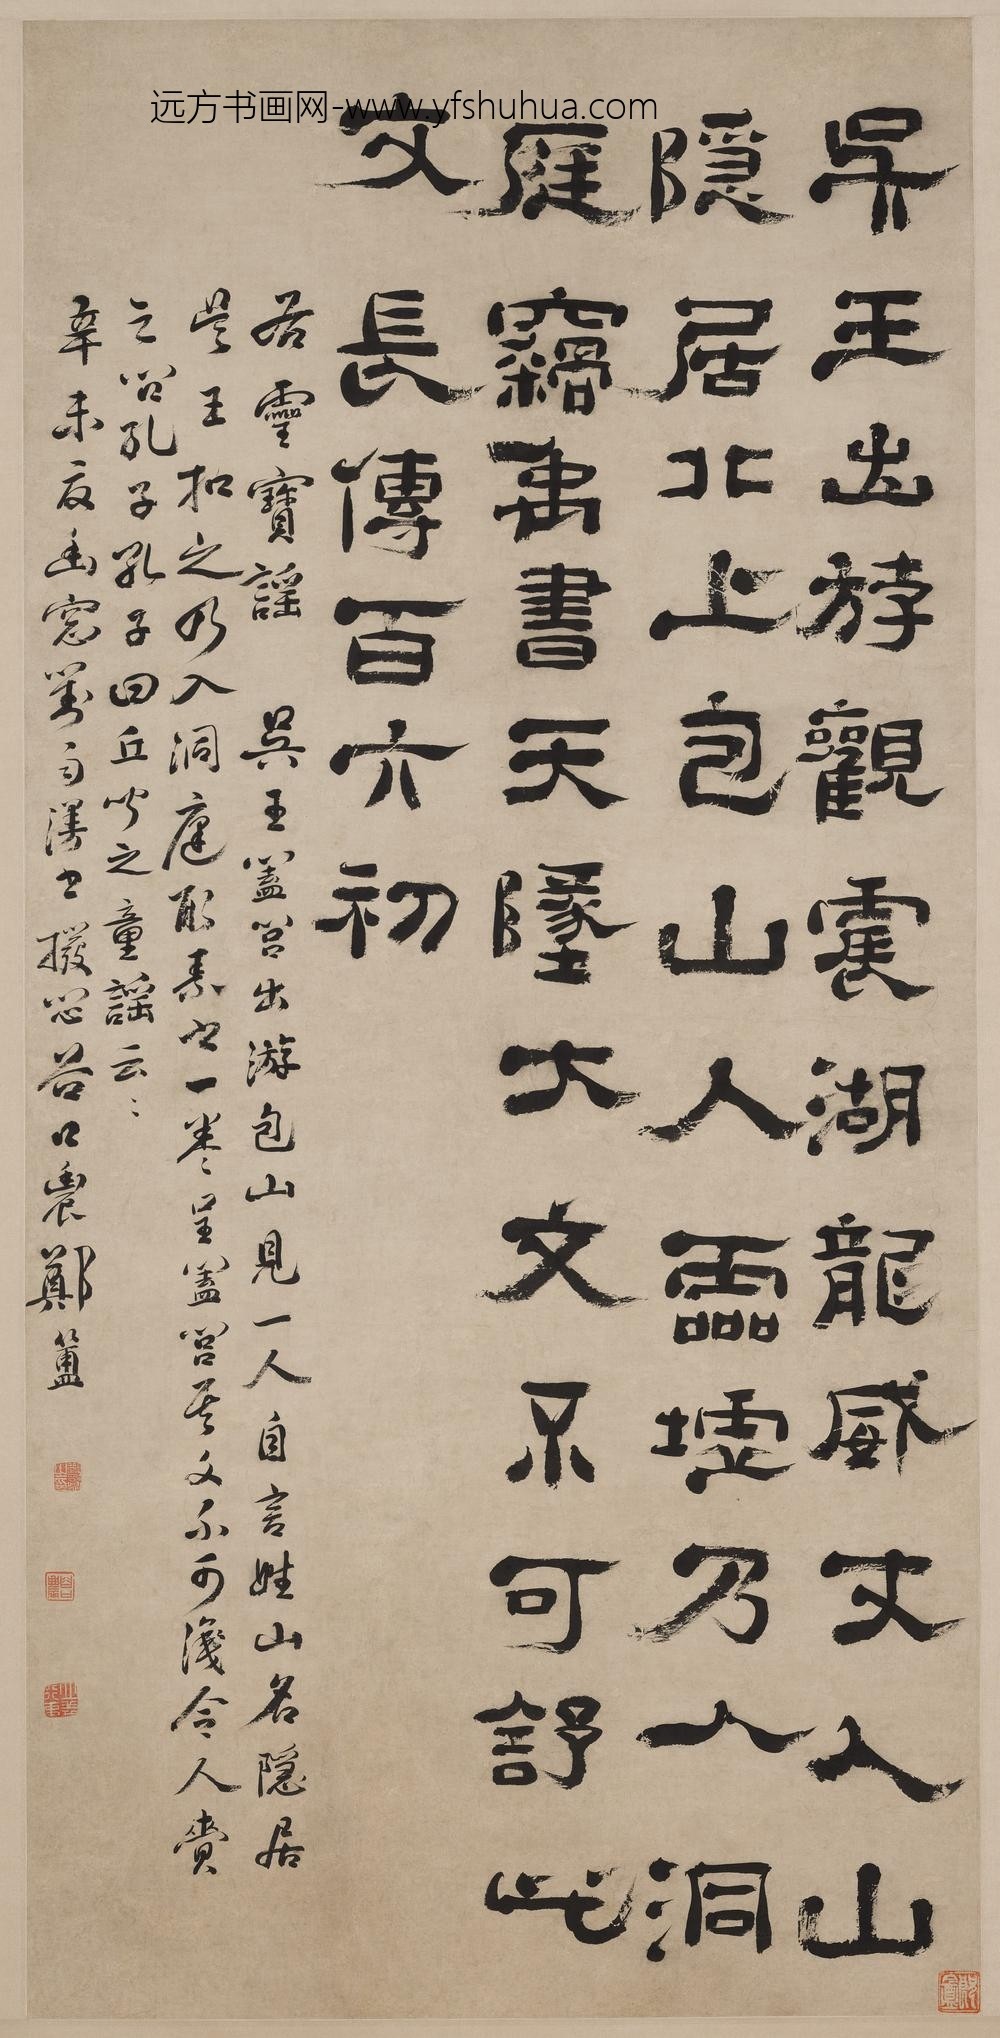 远方书画网-www.yfshuhua.com
吳王出游觀震湖龍威丈人山
隱居北上包山人靈墟乃入洞
庭竊禹書天墬大文不可舒此
文長傳百六初
右靈寶謠 吳王蓋閭出游包山見一人自言姓山名隱居
吳王扣之乃入洞庭取素書一卷呈蓋閭其文不可識令人賫
之問孔子孔子曰丘聞之童謠云云
辛未夜幽窓對雨漫書撥悶谷口農鄭簠